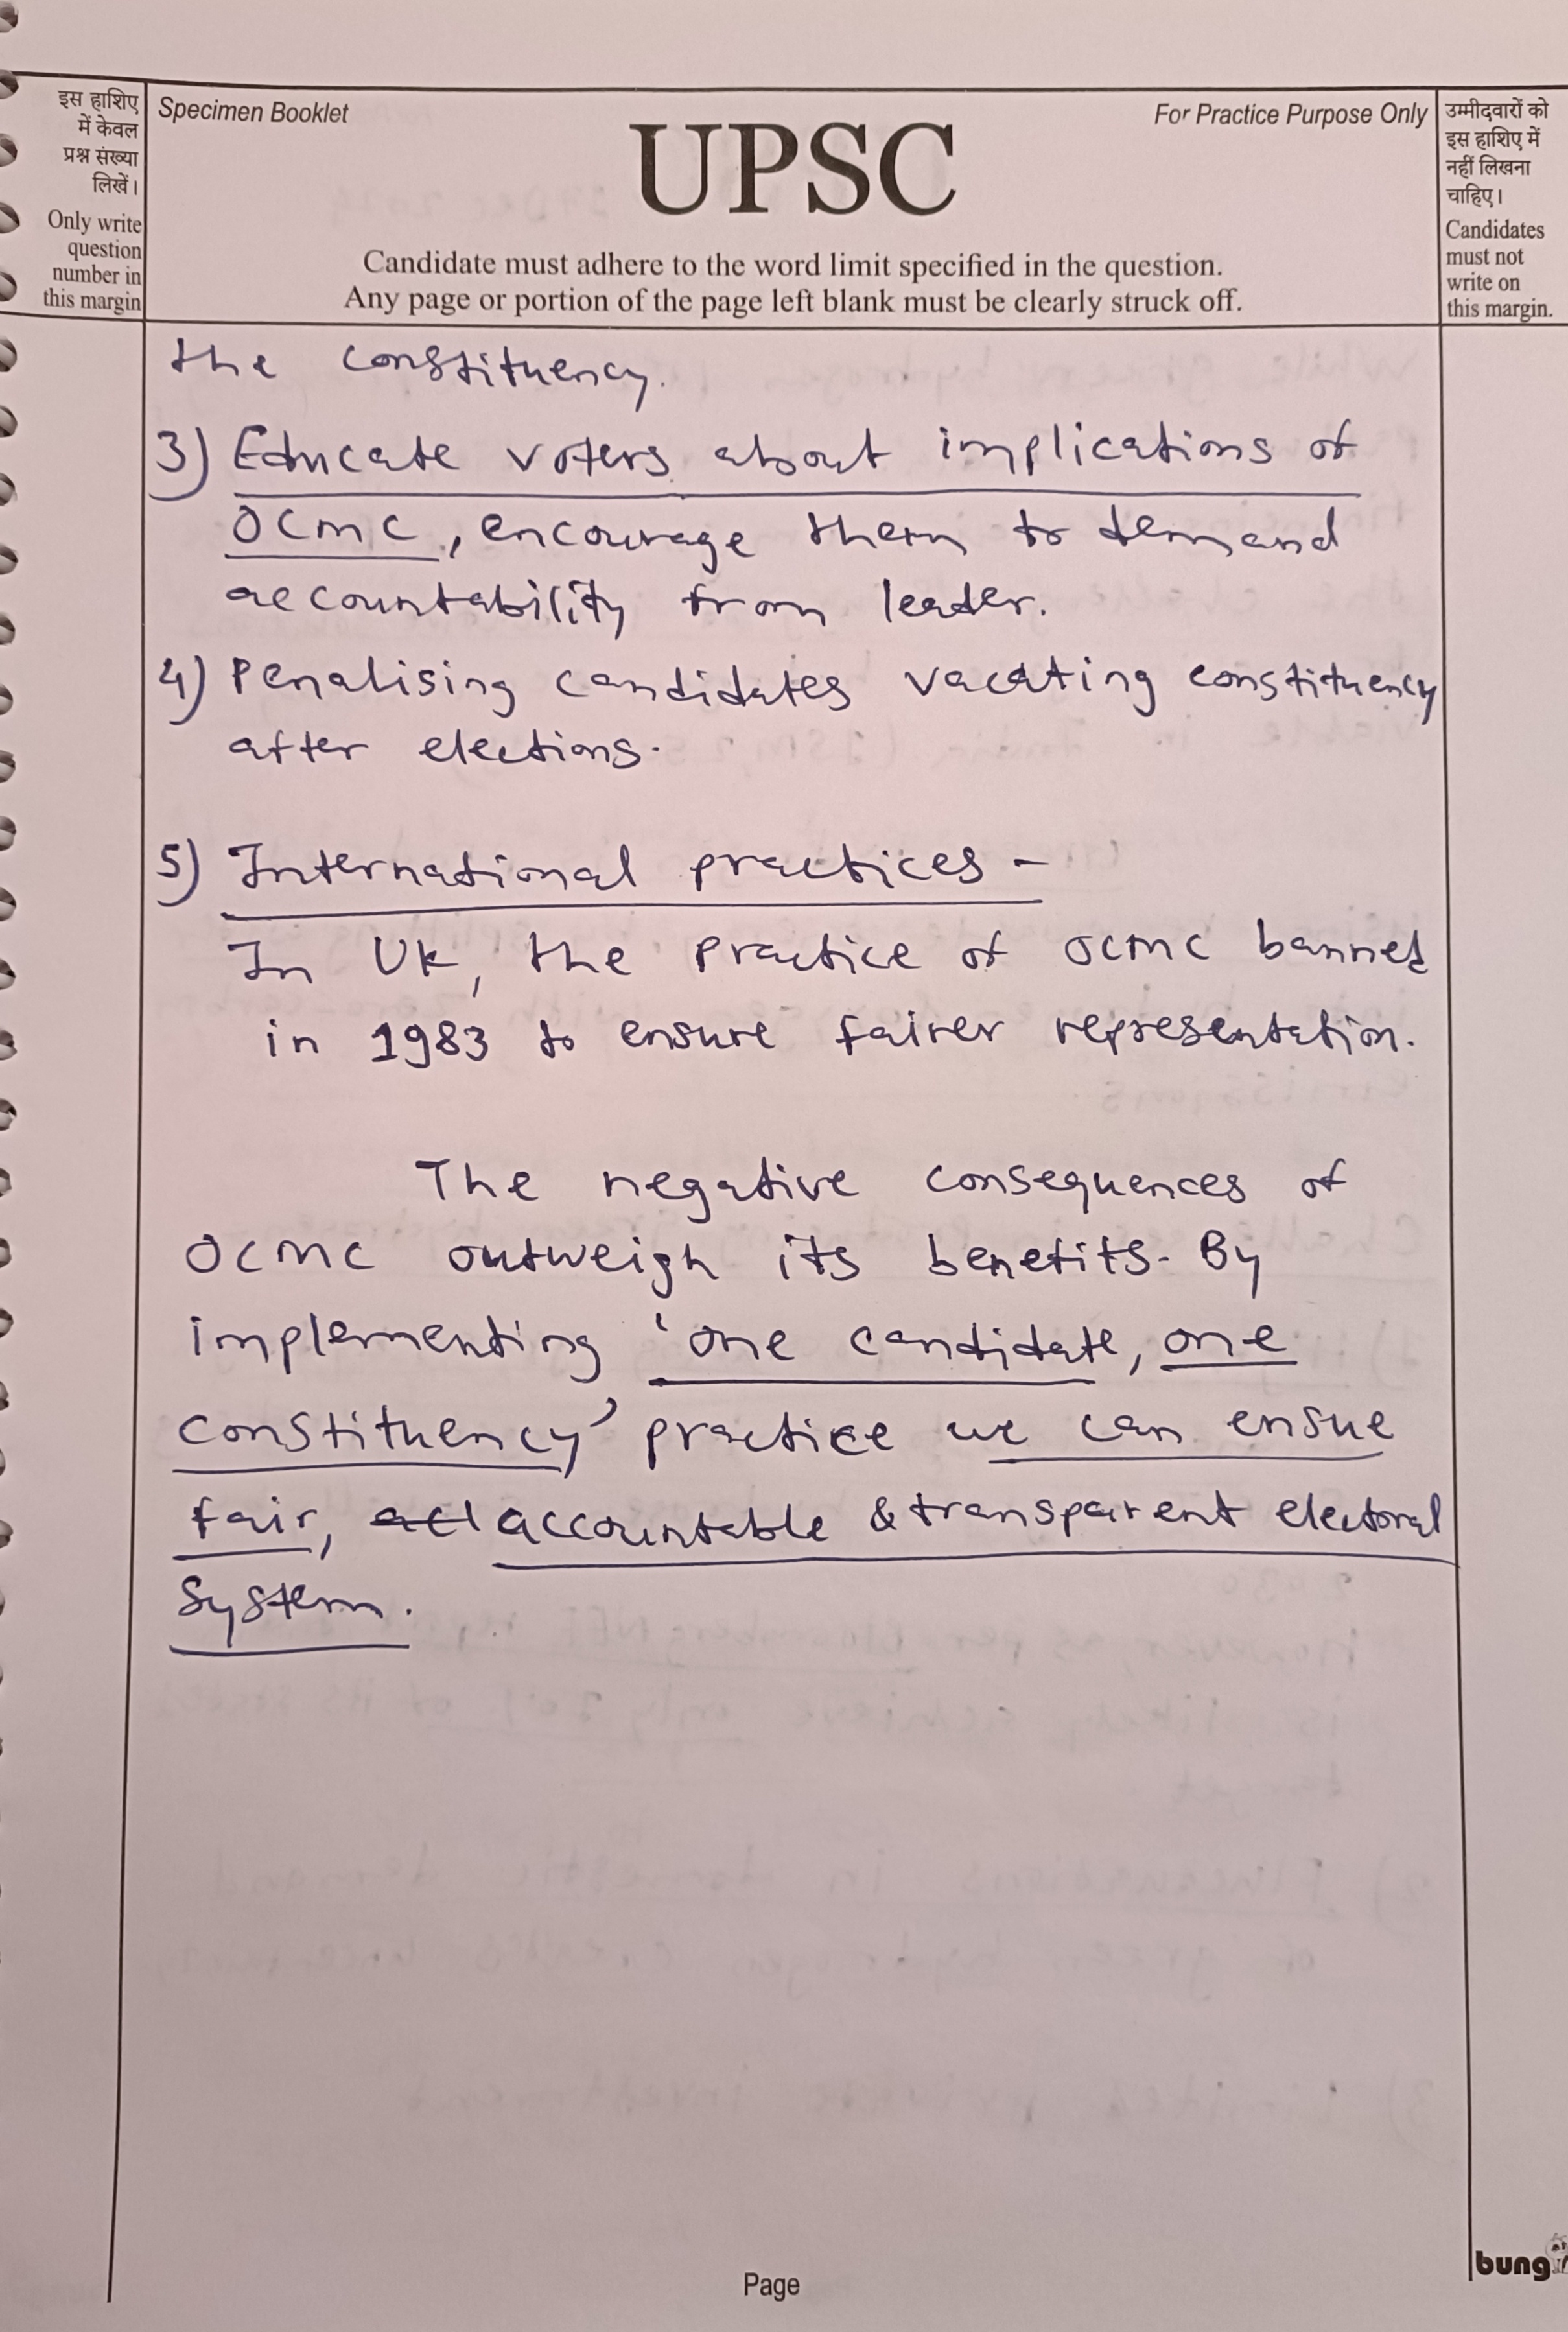 इस हाशिए
में केवल
प्रश्न संख्या
लिखें।
Only write
question
number in
this margin
Specimen Booklet
For Practice Purpose Only
UPSC
Candidate must adhere to the word limit specified in the question.
Any page or portion of the page left blank must be clearly struck off.
उम्मीदवारों को
इस हाशिए में
नहीं लिखना
चाहिए।
Candidates
must not
write on
this margin.
the constituency.
3) Educate voters about implications of
OCMC, encourage them to demand
accountability from leader.
4) Penalising candidates vacating constituency
after elections.
5) International practices -
In UK, the practice of OCMC banned
in 1983 to ensure fairer representation.
The negative consequences of
OCMC outweigh its benefits. By
implementing 'one candidate, one
constituency' practice we can ensue
fair, accountable & transparent electoral
system.
Page
bung